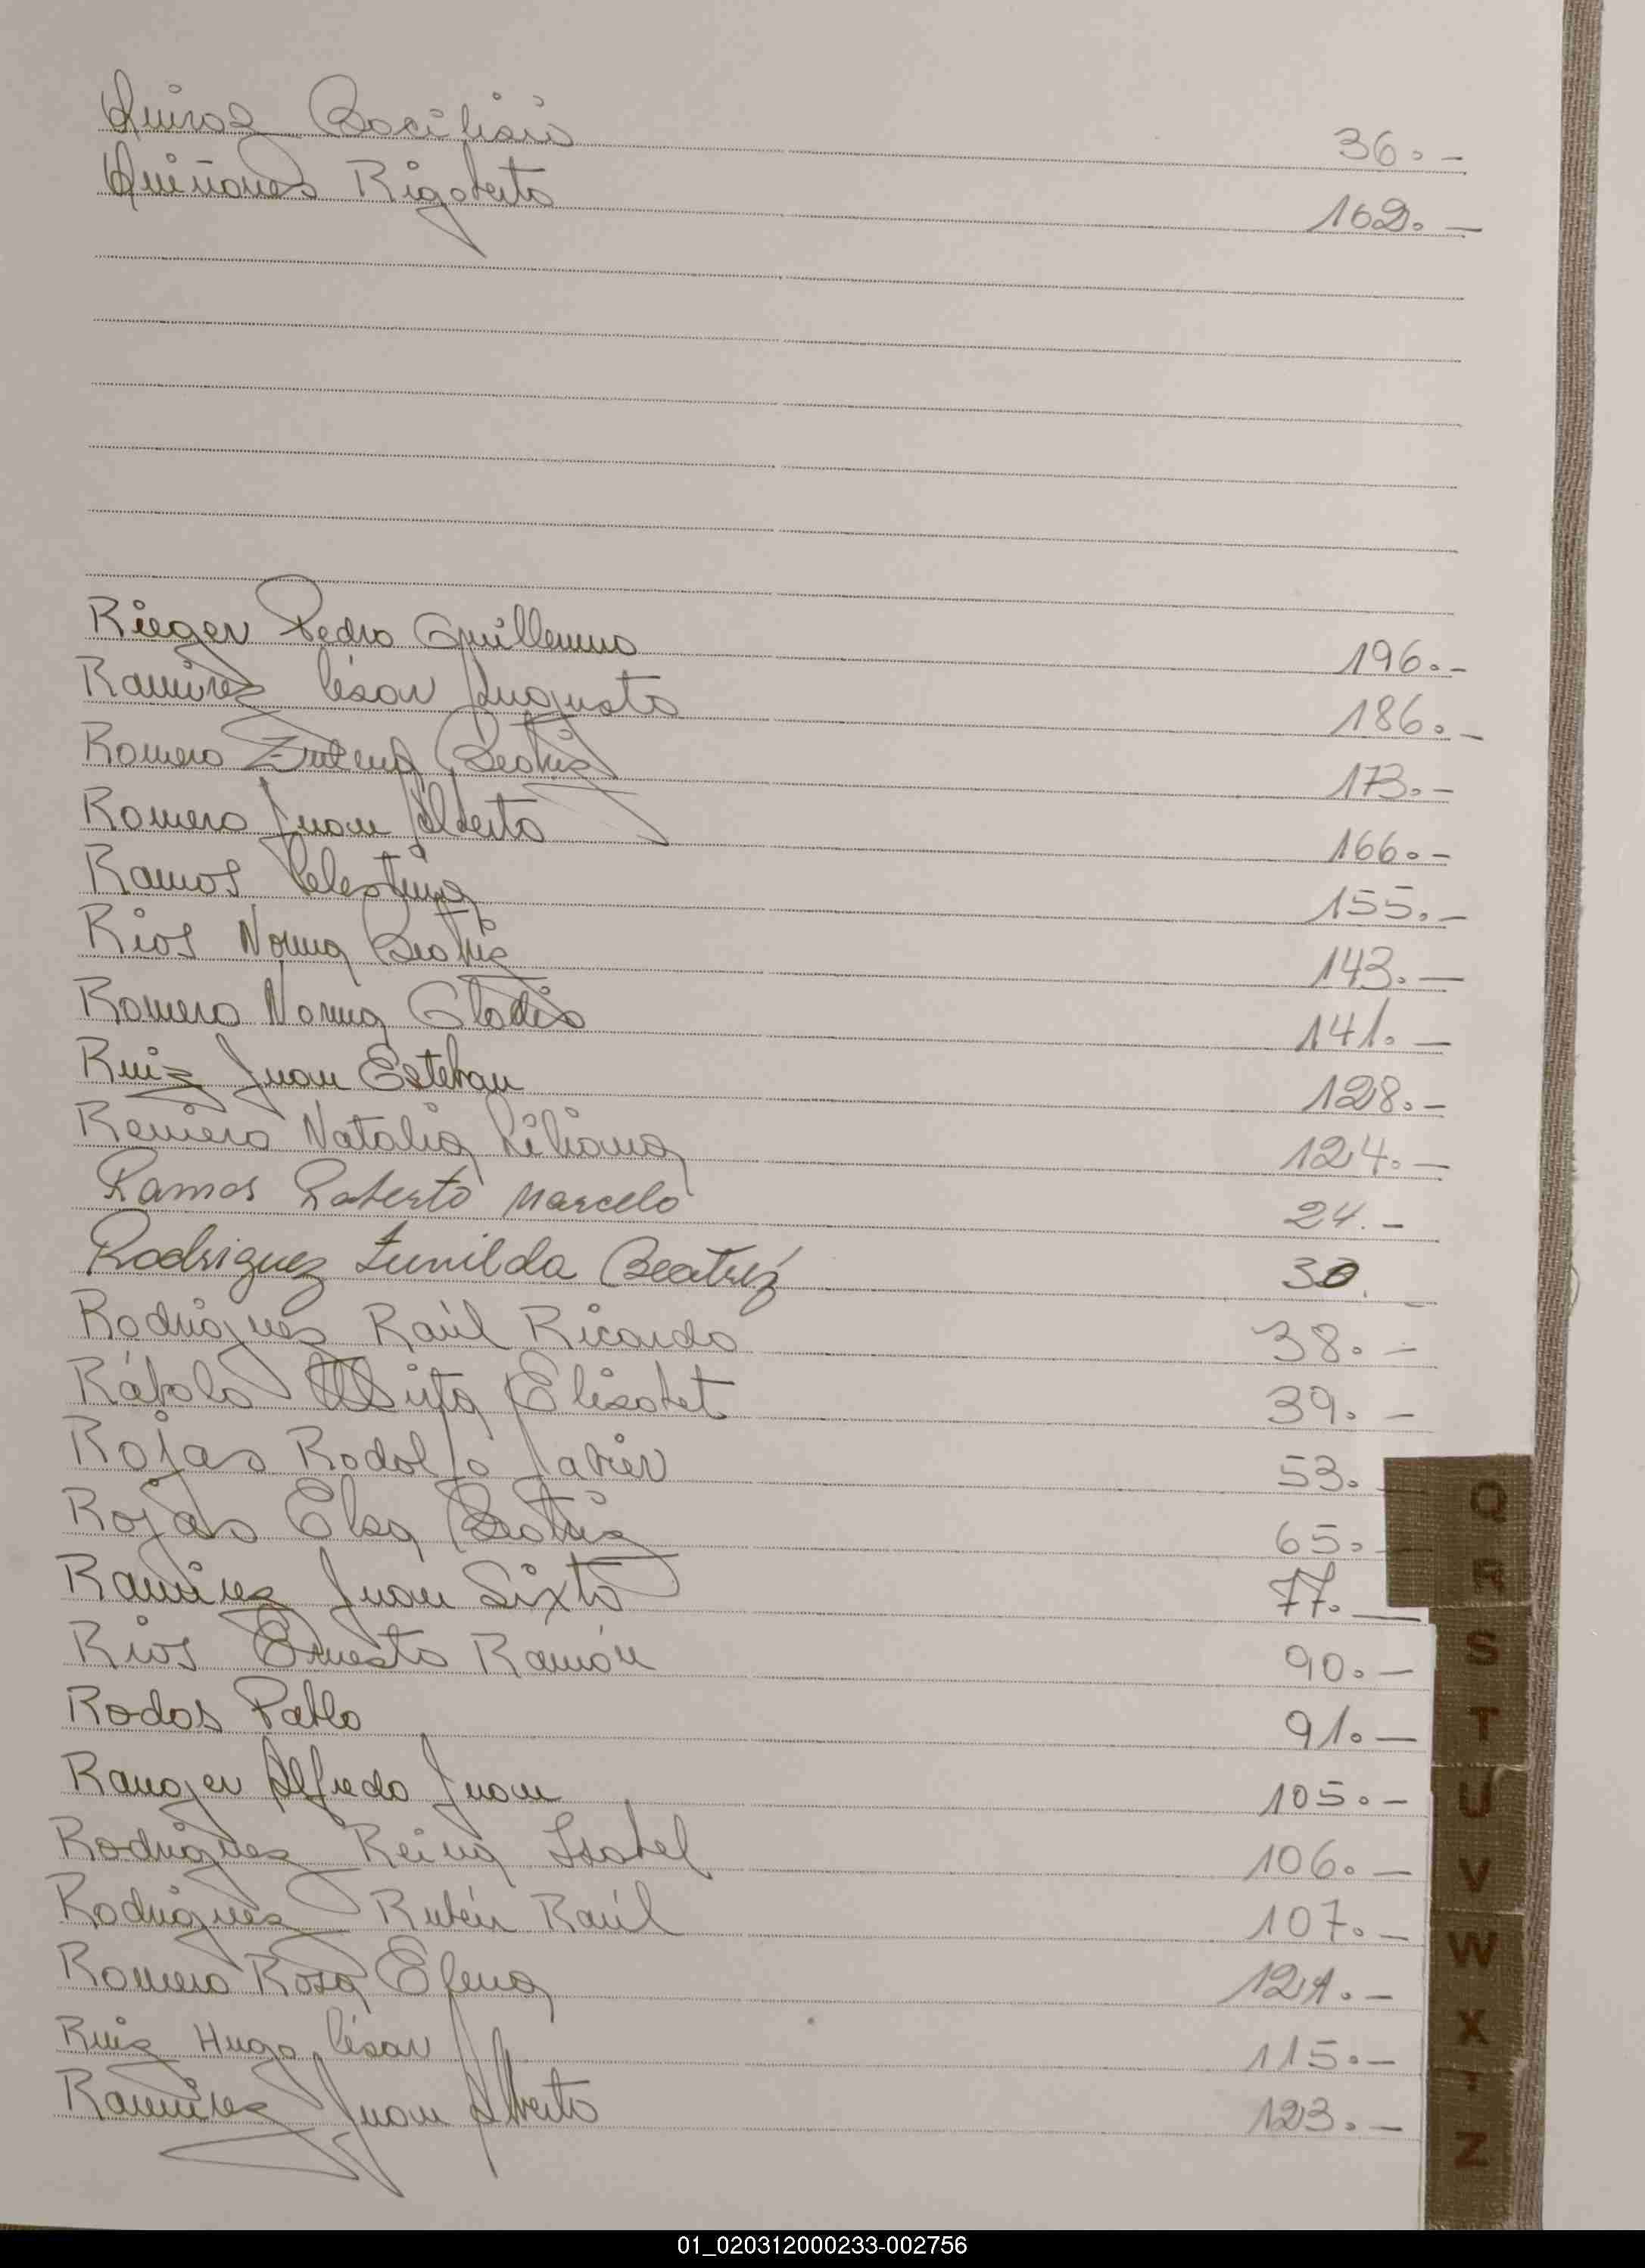 Quiroz Bacilisio 36.-
Quiñones Rigoberto 162.-
Rieger Pedro Guillermo 196.-
Ramirez César Augusto 186.-
Romero Zulema Beatriz 173.-
Romero Juan Alberto 166.-
Ramos Celestina 155.-
Rios Norma Beatriz 143.-
Romero Norma Gladis 141.-
Ruiz Juan Esteban 128.-
Reniero Natalia Liliana 124.-
Ramos Roberto Marcelo 24.-
Rodriguez Zunilda Beatríz 30.-
Rodrigues Raúl Ricardo 38.-
Elisabet 39.-
Rojas Rodolfo Javier 53.-
Rojas Elsa Beatriz 65.-
Ramirez Juan Sixto 77.-
Rios Ernesto Ramón 90.-
Rodas Pablo 91.-
Alfredo Juan 105.-
Rodriguez Reina Isabel 106.-
Rodriguez Rubén Raúl 107.-
Romero Rosa Elena 121.-
Ruiz Hugo César 115.-
Ramirez Juan Alberto 123.-
Q
R
S
T
U
V
W
X
Y
Z
01_020312000233-002756